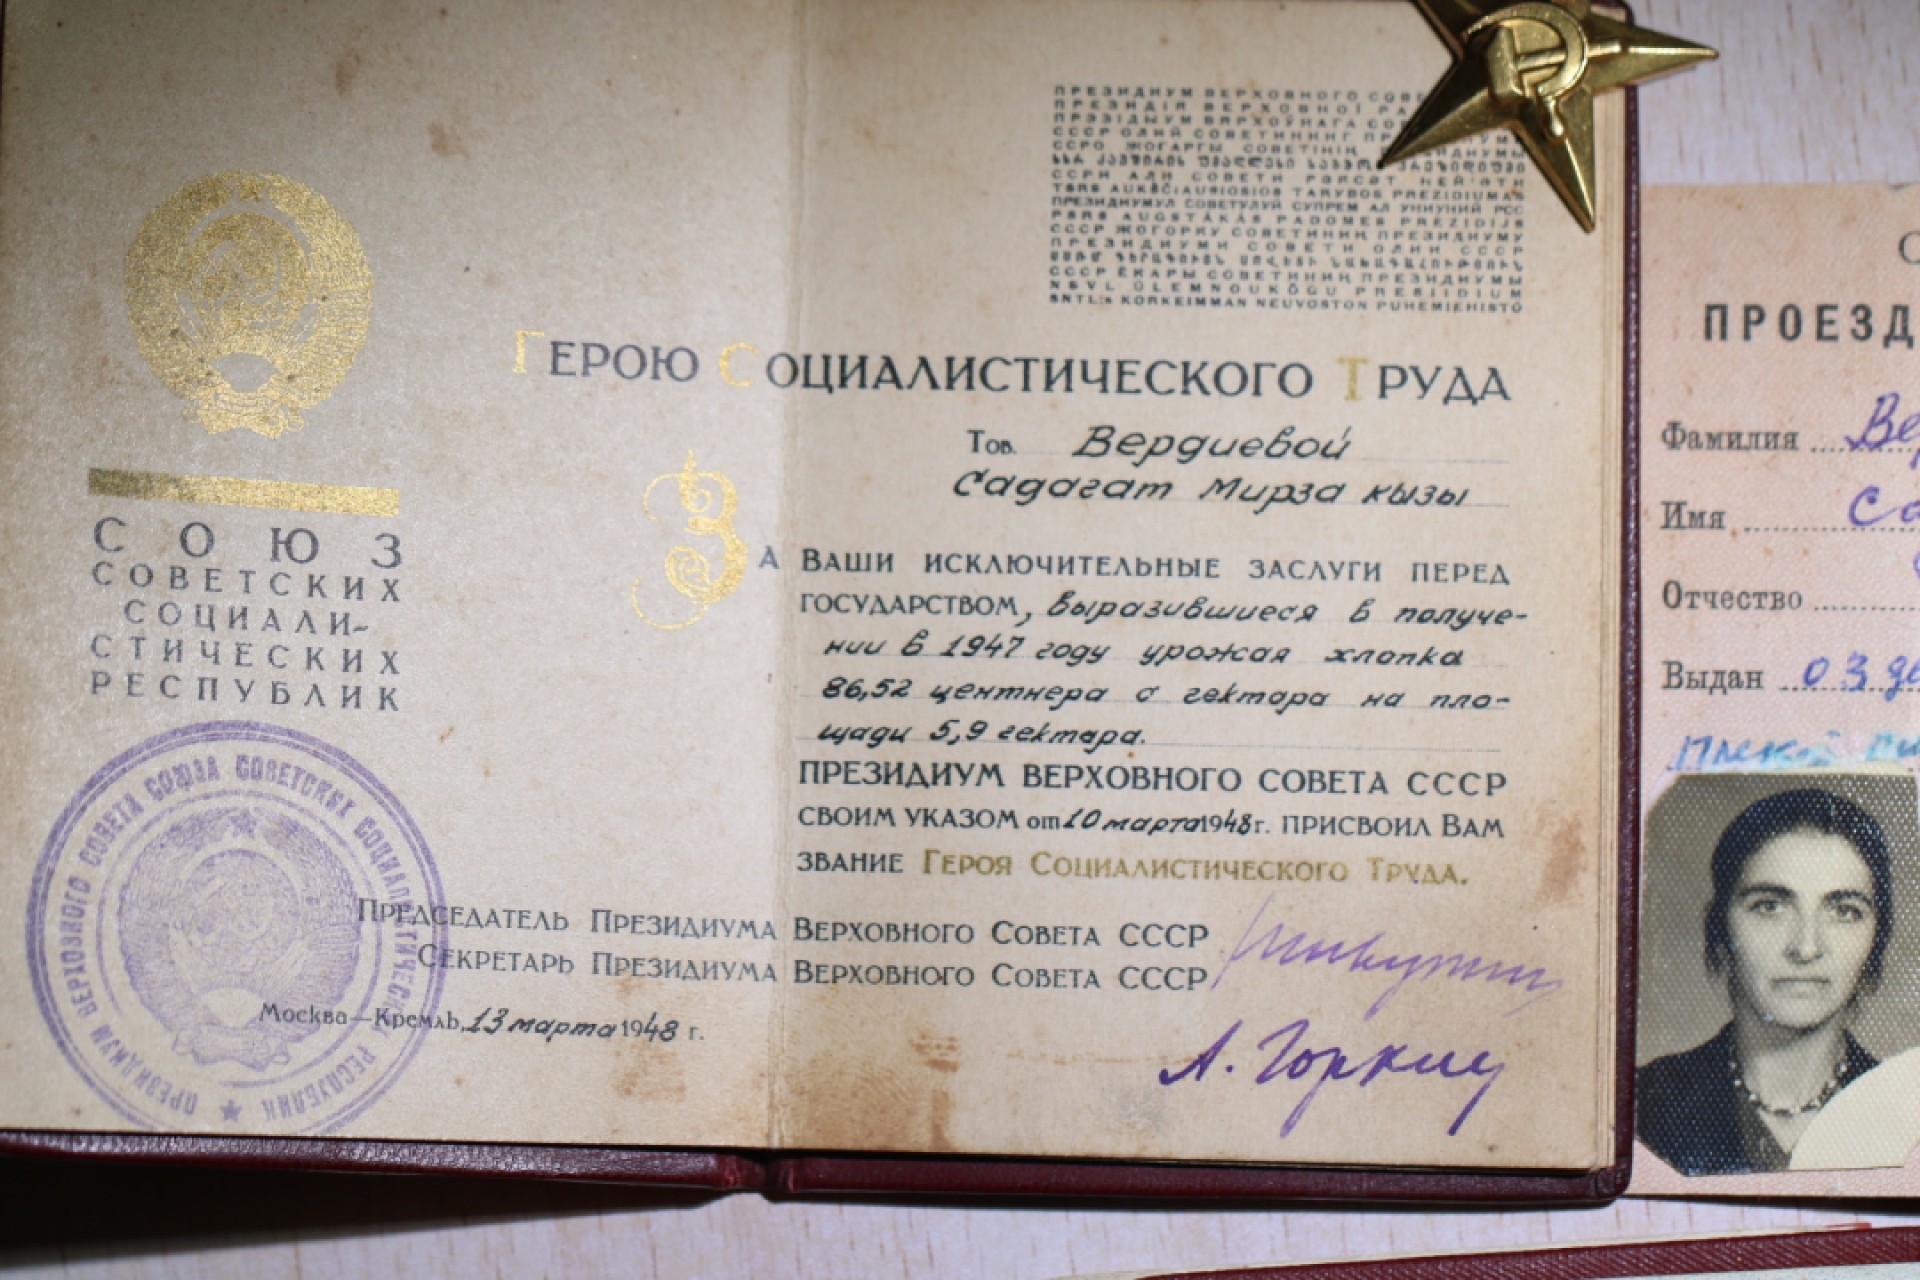 СОЮЗ
СОВЕТСКИХ
СОЦИАЛИ-
СТИЧЕСКИХ
РЕСПУБЛИК
ПРЕЗИДИУМ ВЕРХОВНОГО СОВЕТА СОЮЗА СОВЕТСКИХ СОЦИАЛИСТИЧЕСКИХ РЕСПУБЛИК
ПРЕЗИДИУМ ВЕРХОВНОГО
ПРЕЗИДІЯ ВЕРХОВНОЇ
ПРЭЗІДЫУМ ВЯРХОЎНАГА
СССР ОЛИЙ СОВЕТИНИНГ
ССРО ЖОГАРГЫ СОВЕТІНІҢ
ССРИ АЛИ СОВЕТИ РӘЈАСӘТ ҺЕЙ'ӘТИ
TSRS AUKŠČIAUSIOSIOS TARYBOS PREZIDIUMAS
ПРЕЗИДИУМУЛ СОВЕТУЛУЙ СУПРЕМ АЛ УНИУНИЙ РСС
PSRS AUGSTĀKĀS PADOMES PREZIDIJS
СССР ЖОГОРКУ СОВЕТИНИН ПРЕЗИДИУМУ
ПРЕЗИДИУМИ СОВЕТИ ОЛИИ СССР
СССР ЁКАРЫ СОВЕТИНИҢ ПРЕЗИДИУМЫ
NSVL ÜLEMNÕUKOGU PRESIIDIUM
SNTL:n KORKEIMMAN NEUVOSTON PUHEMIEHISTÖ
ГЕРОЮ СОЦИАЛИСТИЧЕСКОГО ТРУДА
Тов. Вердиевой
Садагат Мирза кызы
ЗА ВАШИ ИСКЛЮЧИТЕЛЬНЫЕ ЗАСЛУГИ ПЕРЕД
ГОСУДАРСТВОМ, выразившиеся в получе-
нии в 1947 году урожая хлопка
86,52 центнера с гектара на пло-
щади 5,9 гектара.
ПРЕЗИДИУМ ВЕРХОВНОГО СОВЕТА СССР
СВОИМ УКАЗОМ от 10 марта 1948 г. ПРИСВОИЛ ВАМ
ЗВАНИЕ ГЕРОЯ СОЦИАЛИСТИЧЕСКОГО ТРУДА.
ПРЕДСЕДАТЕЛЬ ПРЕЗИДИУМА ВЕРХОВНОГО СОВЕТА СССР
СЕКРЕТАРЬ ПРЕЗИДИУМА ВЕРХОВНОГО СОВЕТА СССР
Москва—Кремль, 13 марта 1948 г.
А. Горкин
ПРОЕЗД
Фамилия Ве
Имя Са
Отчество
Выдан 03 де